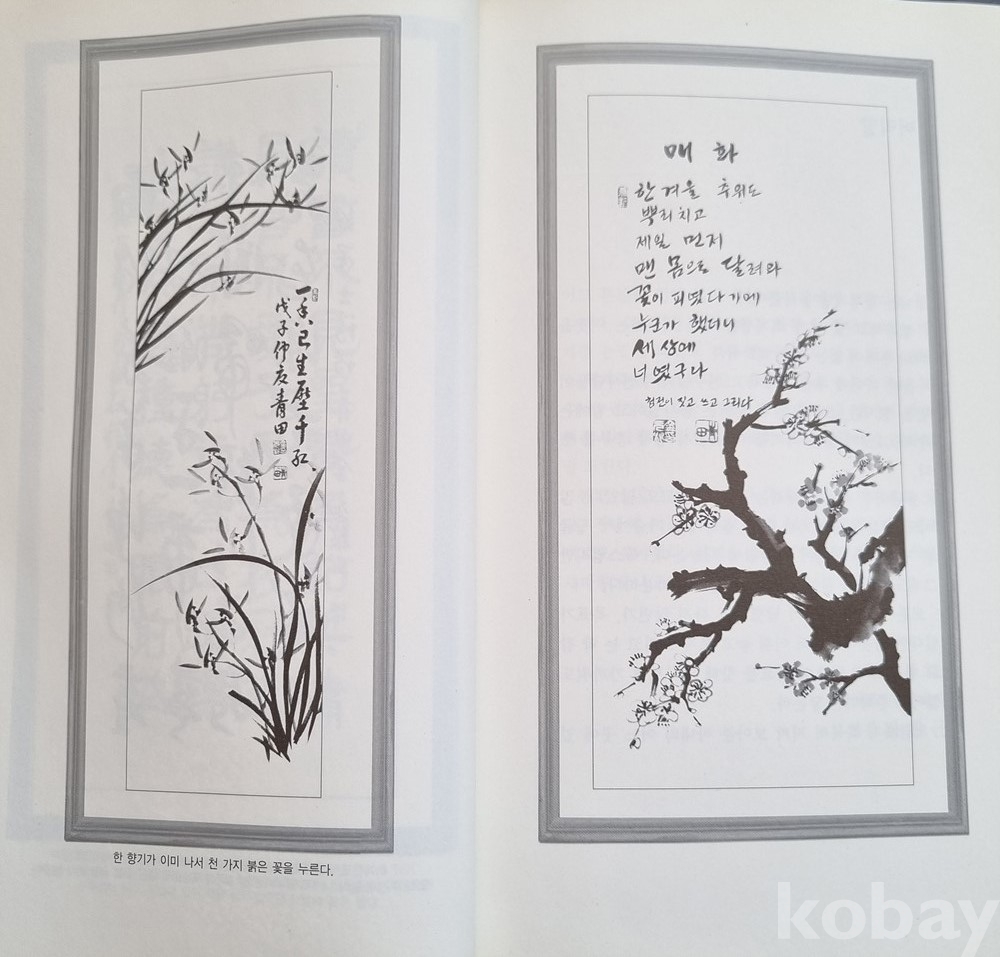 一香已生壓千紅
戊子仲夏靑田
한 향기가 이미 나서 천 가지 붉은 꽃을 누른다.
매 화
한겨울 추위도
뿌리치고
제일 먼저
맨 몸으로 달려와
꽃이 피었다기에
누크가 했더니
세상에
너였구나
청전이 짓고 쓰고 그리다
靑田
kobay